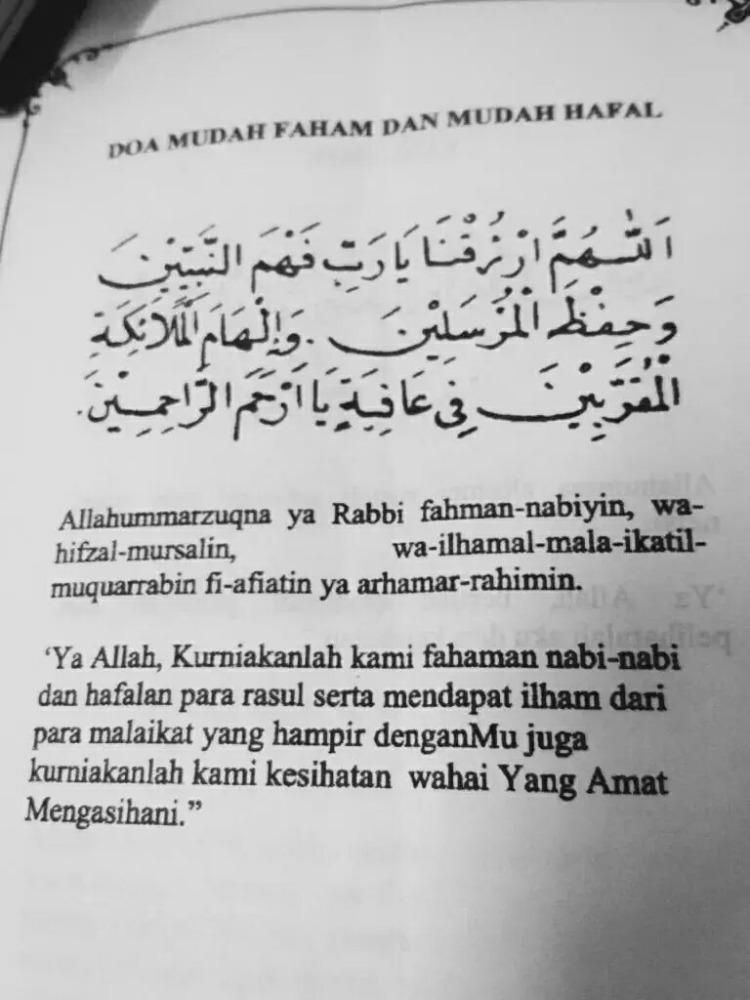 DOA MUDAH FAHAM DAN MUDAH HAFAL
اَللّٰهُمَّ ارْزُقْنَا يَا رَبِّ فَهْمَ النَّبِيِّيْنَ
وَحِفْظَ الْمُرْسَلِيْنَ . وَإِلْهَامَ الْمَلَائِكَةِ
الْمُقَرَّبِيْنَ فِي عَافِيَةٍ يَا أَرْحَمَ الرَّاحِمِيْنَ.
Allahummarzuqna ya Rabbi fahman-nabiyin, wa-
hifzal-mursalin, wa-ilhamal-mala-ikatil-
muquarrabin fi-afiatin ya arhamar-rahimin.
‘Ya Allah, Kurniakanlah kami fahaman nabi-nabi
dan hafalan para rasul serta mendapat ilham dari
para malaikat yang hampir denganMu juga
kurniakanlah kami kesihatan wahai Yang Amat
Mengasihani.”